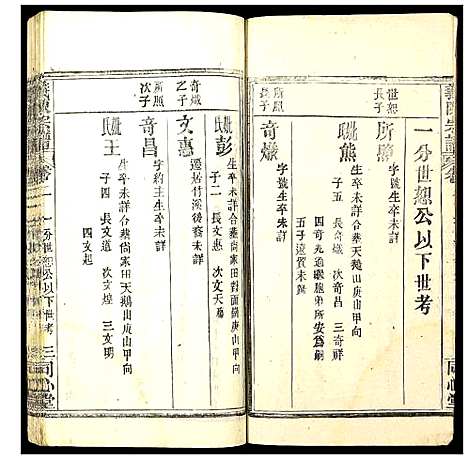 一分世恕公以下世考
世恕
長子
所照
字號生卒未詳
氏熊
生卒未詳合葬天鵝山庚山甲向
子五 長奇熾 次奇昌 三奇祥
四奇 所安為嗣
五子遠貿未
所照
長子
奇熾
字號生卒未詳
氏彭
生卒未詳合葬尚家田 山庚山甲向
子二 長文惠 次文
奇熾
之子
文惠
遷居竹溪後裔未詳
所照
次子
奇昌
字約主生卒未詳
氏王
生卒未詳合葬尚家田天鵝山庚山甲向
子四 長文道 次文煌 三文明
四文起
義陳宗譜 卷二
一分世恕公以下世考
三
同心堂